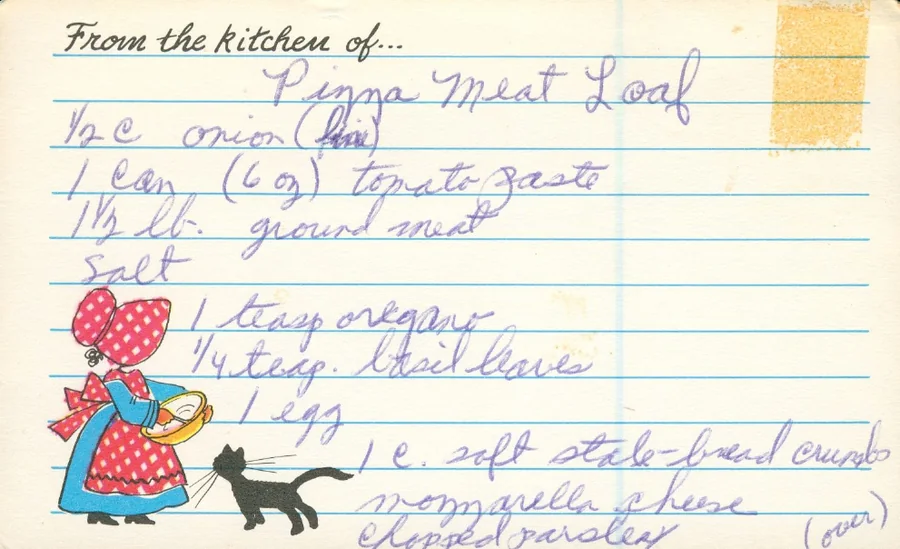 From the kitchen of...
Pizza Meat Loaf
1/2 c onion (fine)
1 can (6 oz) tomato paste
1 1/2 lb. ground meat
Salt
1 teasp oregano
1/4 teasp. basil leaves
1 egg
1 c. soft stale-bread crumbs
mozzarella cheese
chopped parsley
(over)